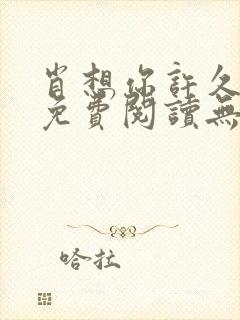 肖想你許久
免費閱讀無
哈拉